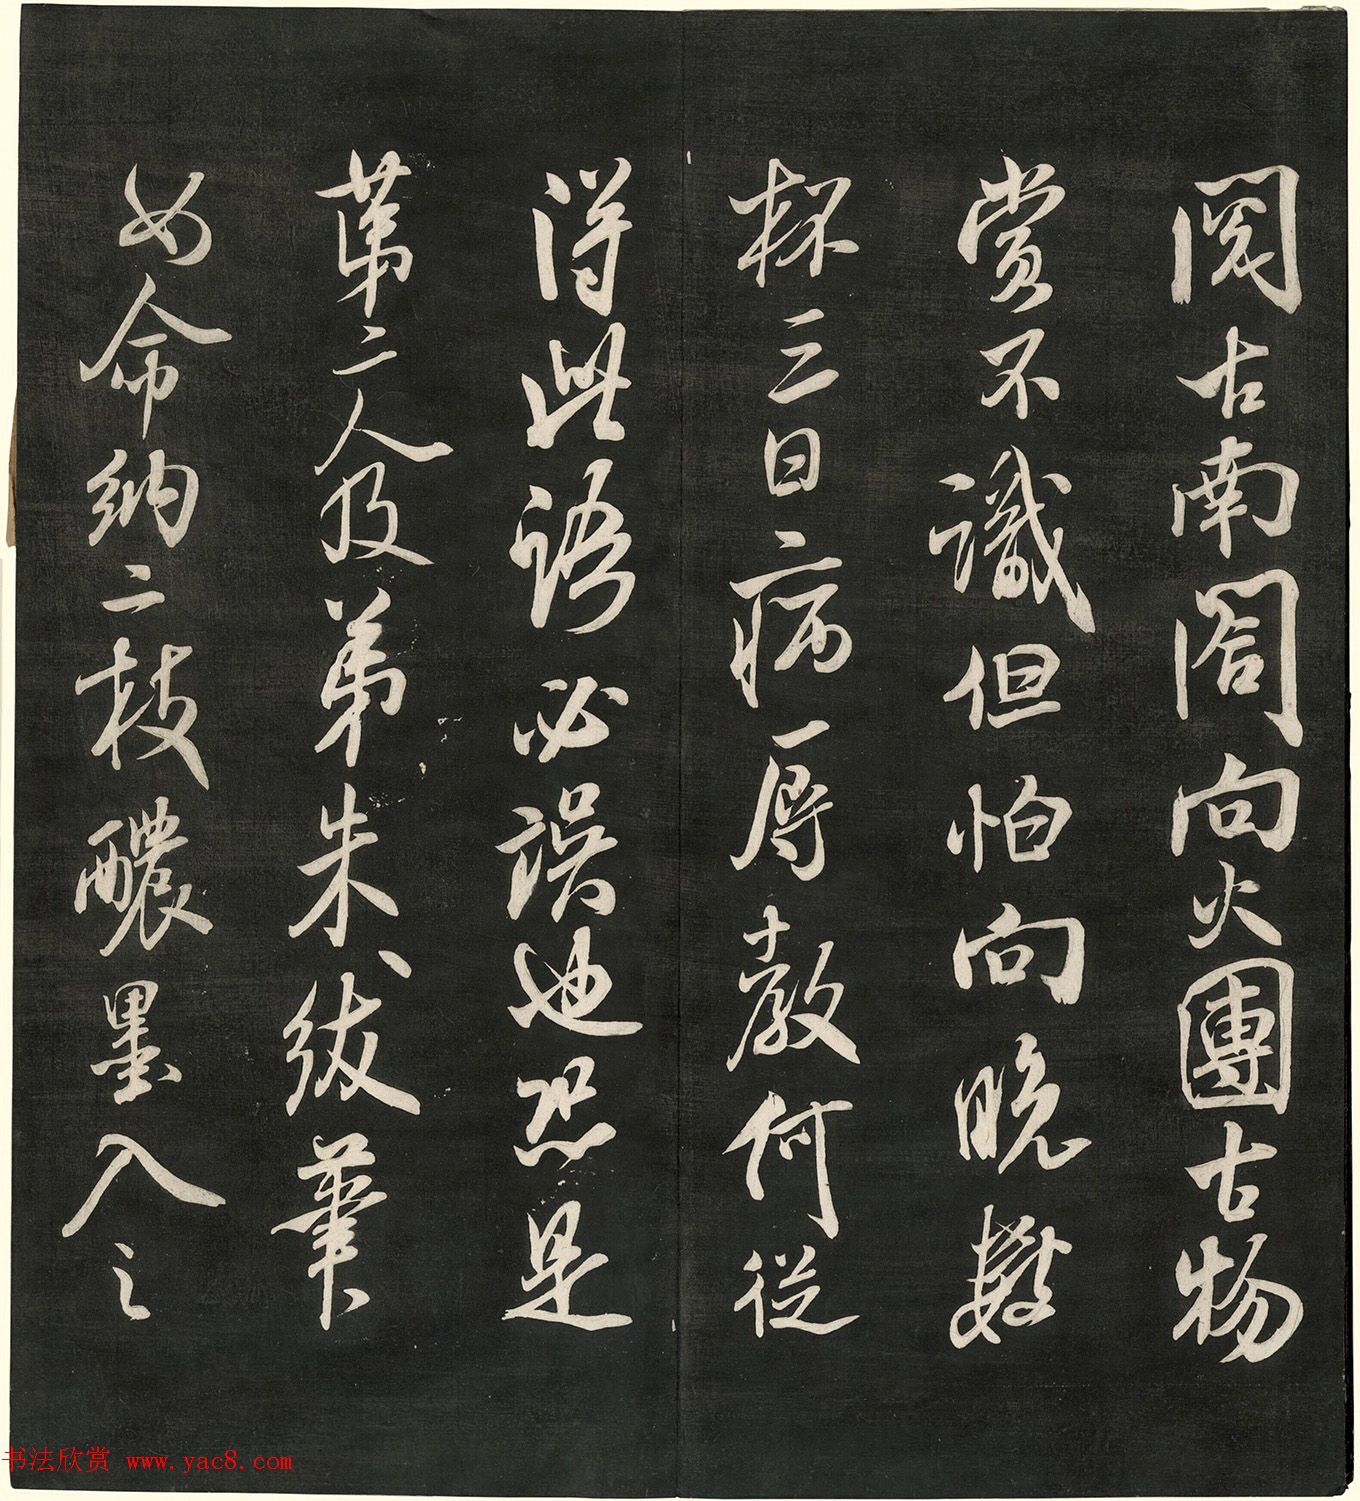 阅古南阁向火團古物
赏不識但怕向晚數
杯三日病辱教何從
得此語必誤也恐是
第二人及弟朱紱筆
如命納二枝醲墨入之
书法欣赏 www.yac8.com